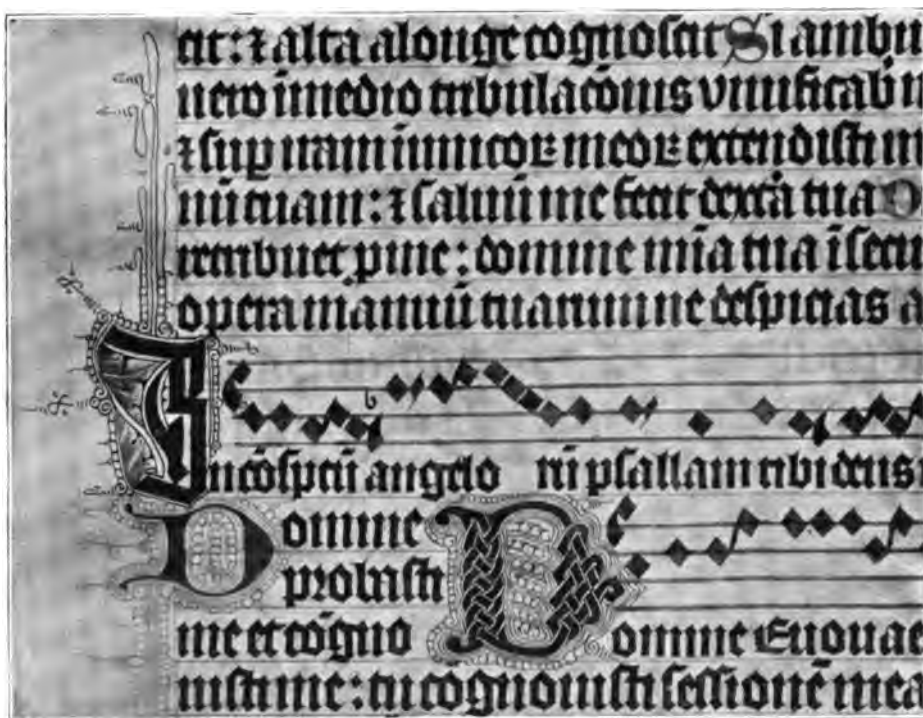 cit: ⁊ alta a longe cognoscit Si ambu
uero ī medio tribulacōnis viuificabi
⁊ suꝑ iram inimicoꝝ meoꝝ extendisti m
nū tuam: ⁊ saluū me fecit dext̄a tua D
retribuet ꝓ me: domine mīa tua ī secu
opera manuū tuarum ne despicias a
In cōspc̄u angelo rū psallam tibi deus
Domine
probasti
me et cōgno Domine Euouae
uisti me: tu cōgnouisti sessionē mea